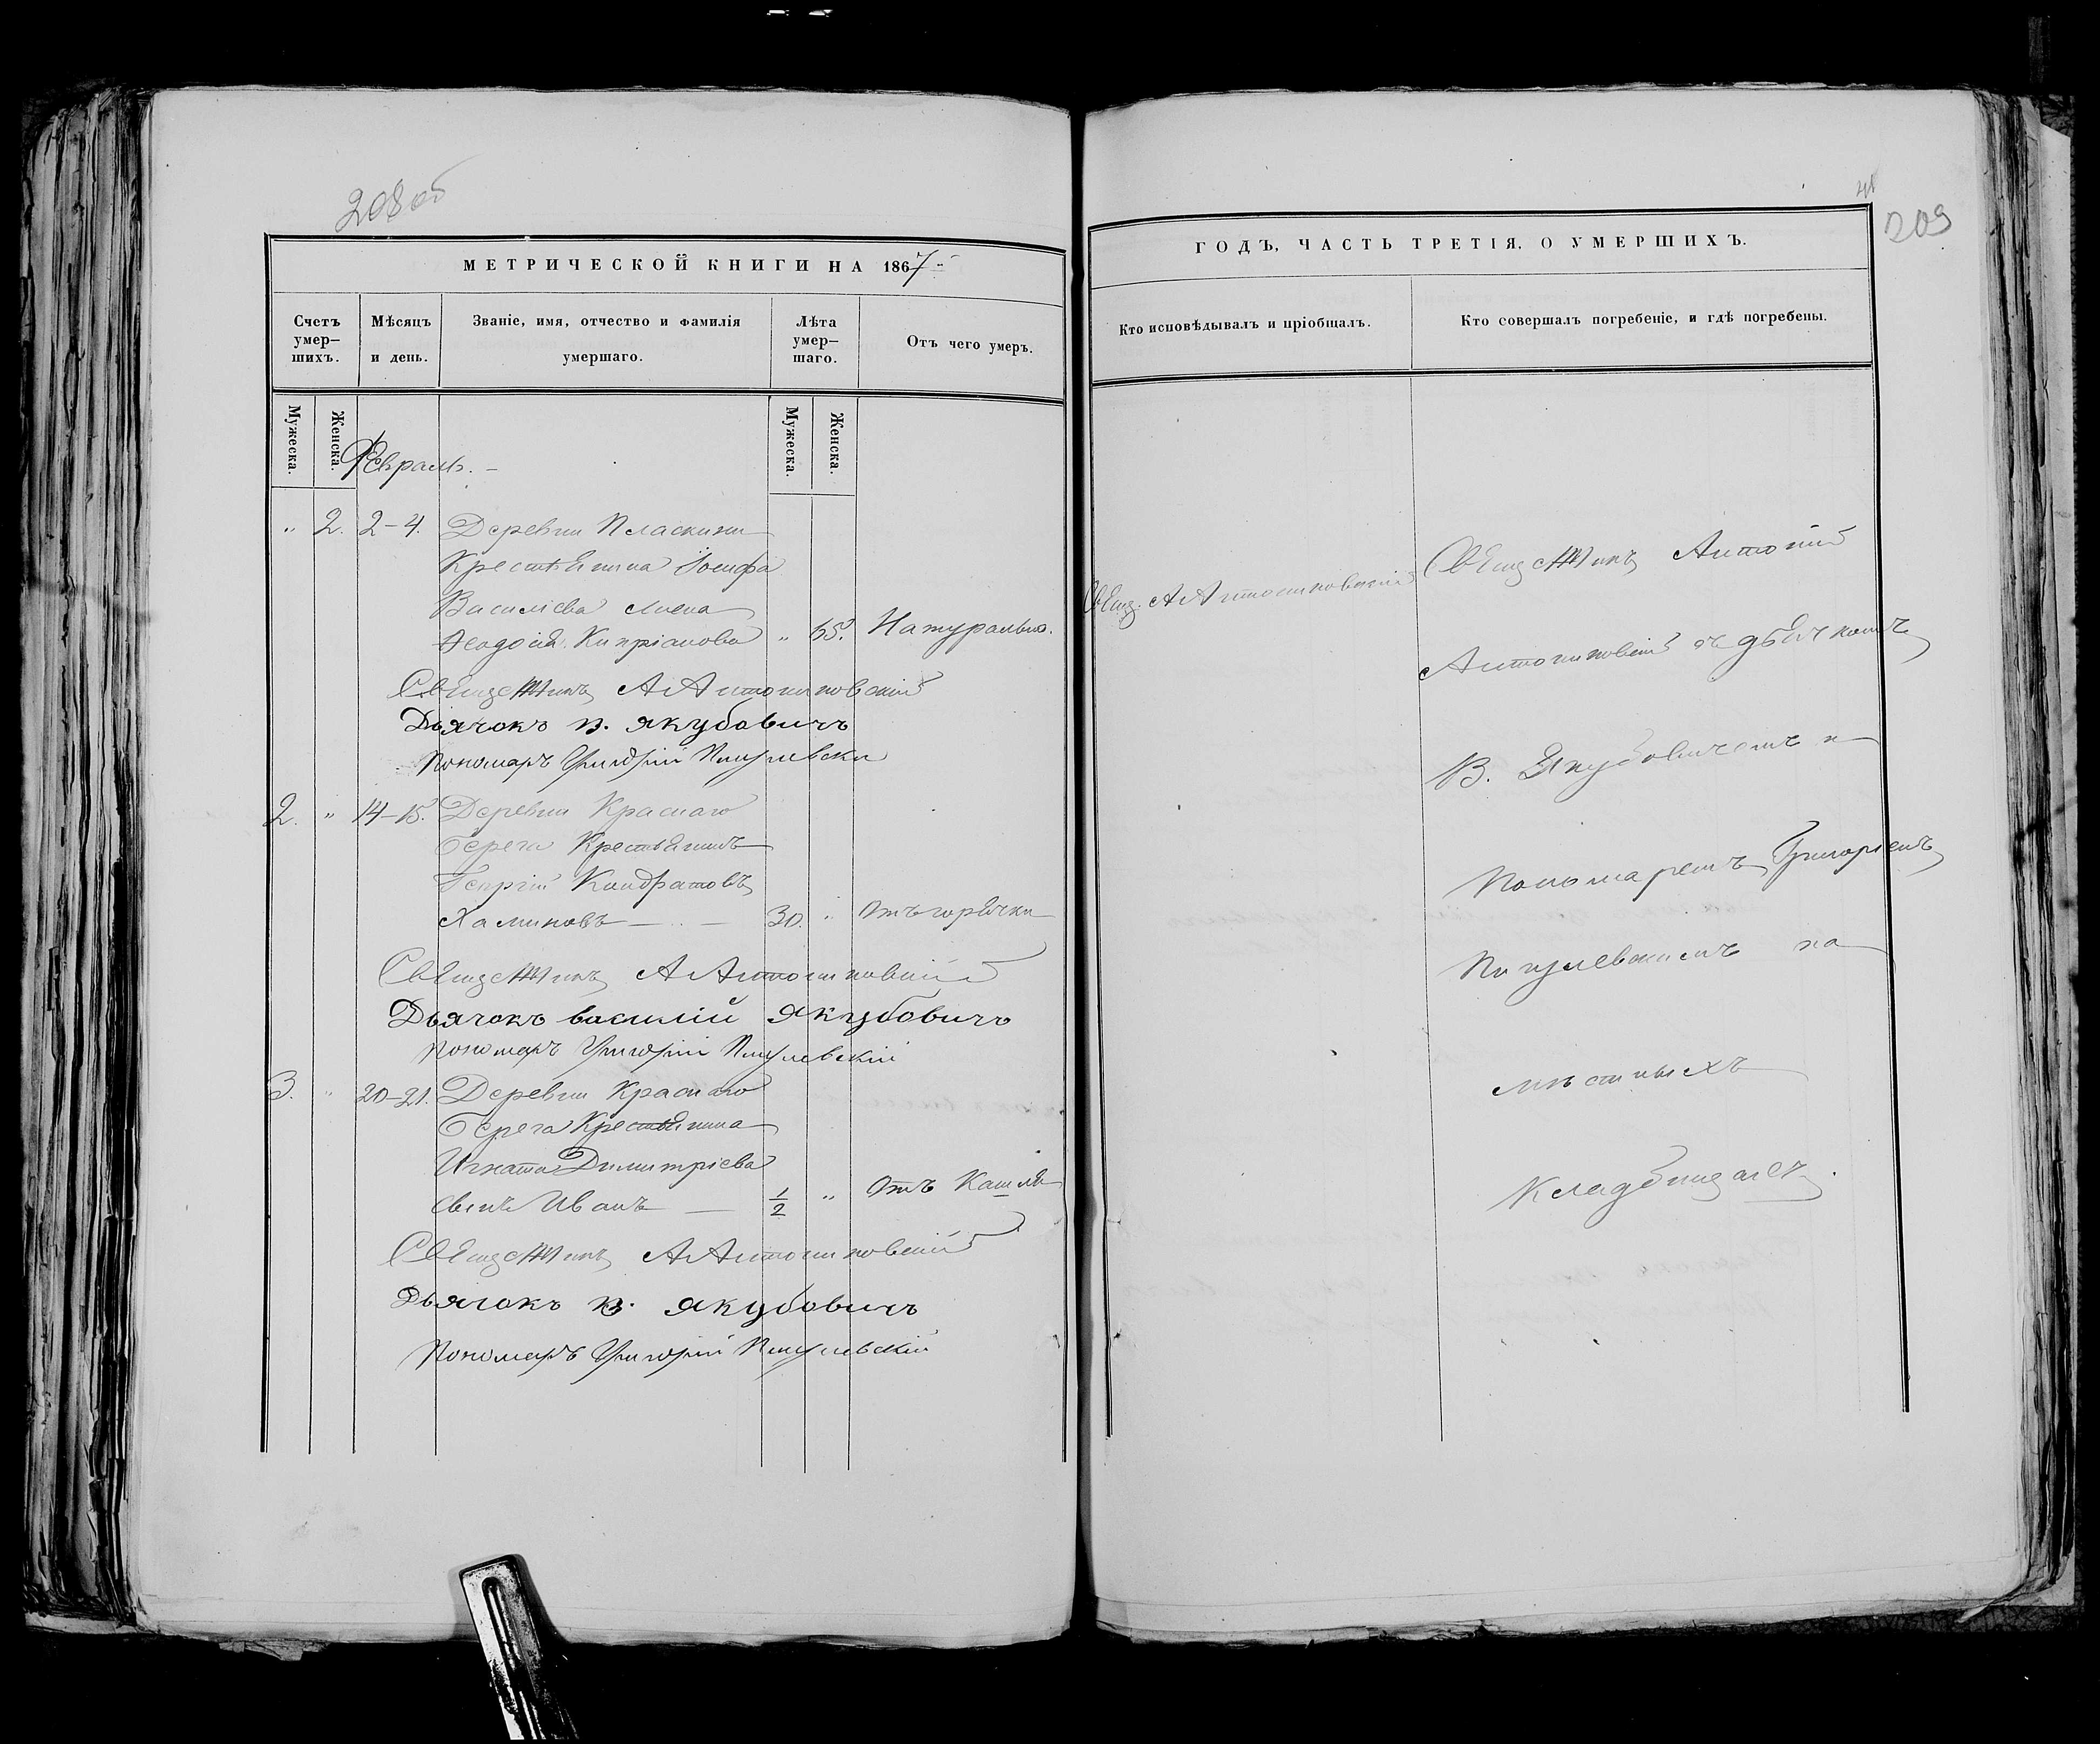 208об
МЕТРИЧЕСКОЙ КНИГИ НА 1867
Счетъ умер–шихъ.
Мѣсяцъ и день.
Званіе, имя, отчество и фамилія умершаго.
Лѣта умер–шаго.
Отъ чего умеръ.
Мужеска.
Женска.
Мужеска.
Женска.
Февраль. –
" 2. 2–4. Деревни Пласкини
Крестьянина Іосифа
Василіева жена
Ѳеодосія Кипріанова " 65. Натурально.
Священникъ А Антониковскій
Дьячокъ В. Якубовичъ
Пономарь Григорій
2. " 14–15. Деревни Краснаго
Берега Крестьянинъ
Георгій Кондратовъ
Халиновъ — 30. " Отъ горячки
Священникъ А Антониковскій
Дьячокъ василій Якубовичъ
Пономарь Григорій
3. " 20–21. Деревни Краснаго
Берега Крестьянина
Игната Димитріева
сынъ Иванъ — 1/2 " Отъ Кашля
Священникъ А Антониковскій
Дьячокъ В. Якубовичъ
Пономарь Григорій
209
ГОДЪ, ЧАСТЬ ТРЕТІЯ, О УМЕРШИХЪ.
Кто исповѣдывалъ и пріобщалъ.
Кто совершалъ погребеніе, и гдѣ погребены.
Свящ. А Антониковскій
Священникъ Антоній
Антониковскій съ дьячкомъ
В. Якубовичемъ и
Пономаремъ Григоріемъ
на
мѣстныхъ
Кладбищахъ.